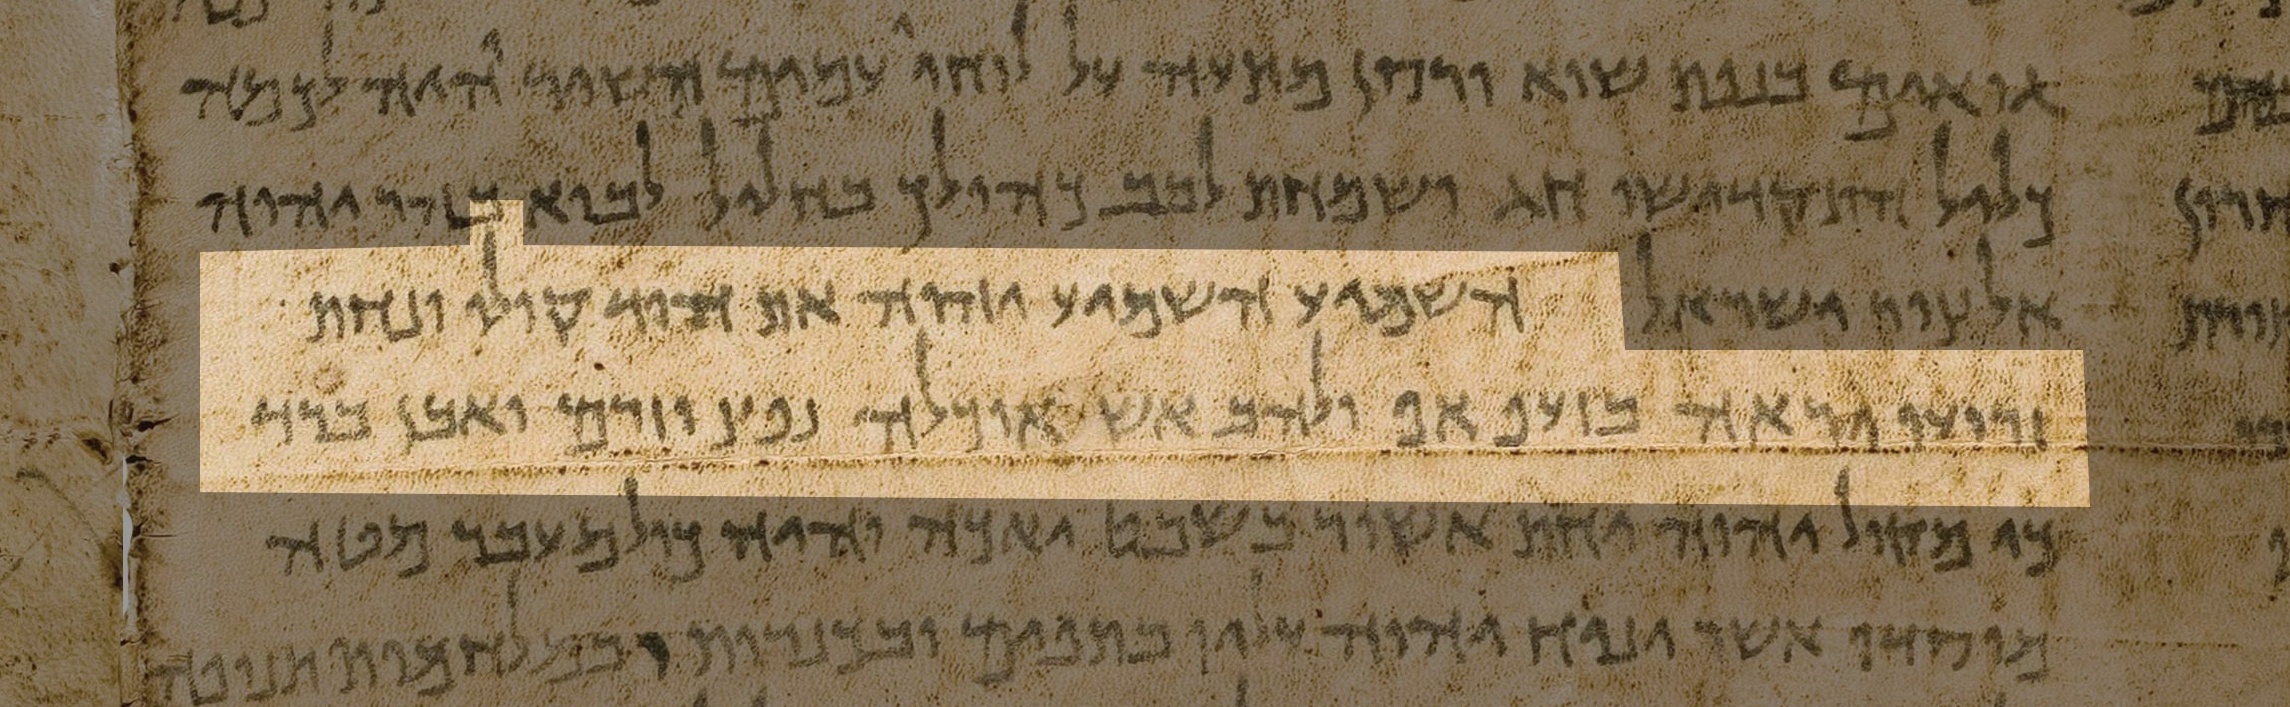 גואים בנפת שוא ורסן מתעה על לוחיי עמים השיר יהיה לכמה
כליל התקדשו חג ושמחת לבב כהולך בחליל לבוא בהר יהוה
אל צור ישראל השמיע השמיע יהוה את הוד קולו ונחת
זרועו יראה בזעף אף ולהב אש אוכלה נפץ וזרם ואבן ברד
כי מקול יהוה יחת אשור בשבט והיה כול מעבר מטה
מוסדו אשר יניח יהוה עליו בתפים ובכנרות ובמלחמות תנופה